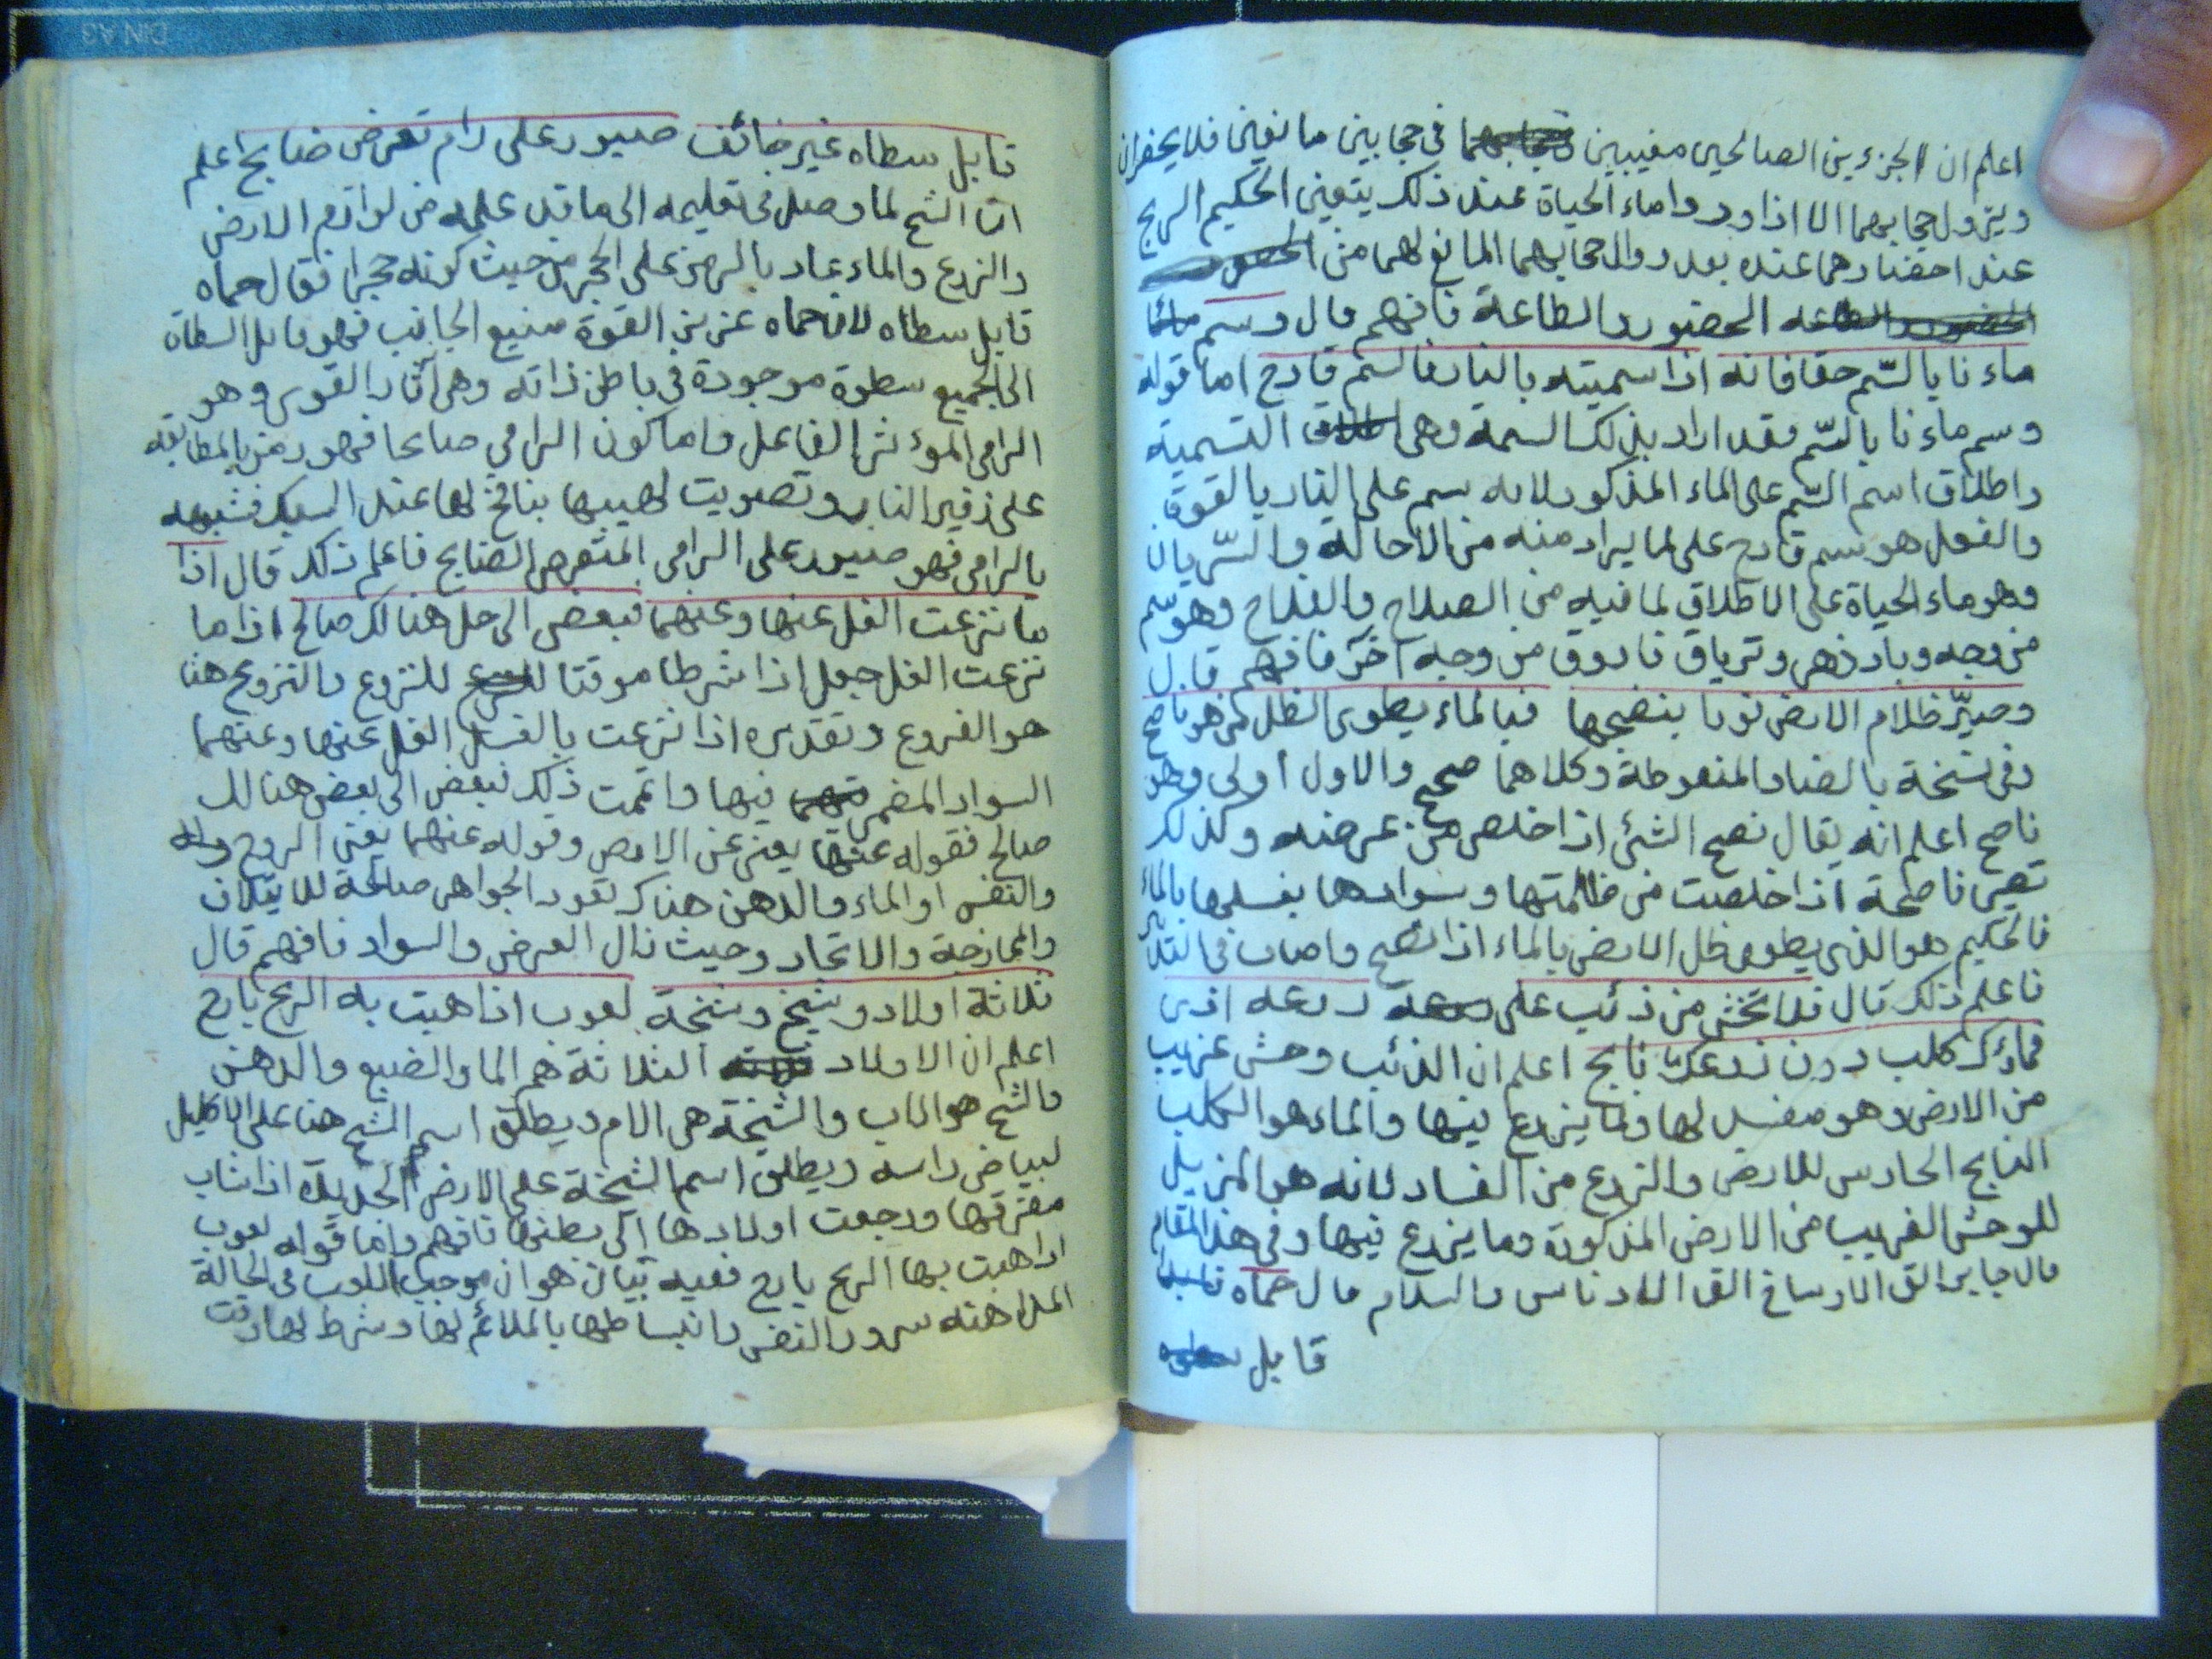 اعلم ان الجزءين الصالحين مغيبين في حجابين مانعين فلا يحضران
ويزول حجابهما الا اذا وردا ماء الحياة عند ذلك يتعين الحكيم الربح
عند احضارهما عنده بعد زوال حجابهما المانع لهما من الحضور
الحضور والطاعة فافهم قال وسم
ماءنا بالسّم حقا فانه اذا سميته بالنار فالسم قادح اما قوله
وسم ماءنا بالسّم فقد اراد بذلك السمة وهي التسمية
واطلاق اسم السّم على الماء المذكور لانه سم على النار بالقوة
والفعل هو سم قادح على لما يراد منه من الاحالة والسّريان
وهو ماء الحياة على الاطلاق لما فيه من الصلاح والفلاح وهو سّم
من وجه وبادزهر وترياق فاروق من وجه آخر فافهم قال
وصيّر ظلام الارض نورا بنصحها فبالماء يطوى الظل من هو ناصح
وفي نسخة بالضاد المنقوطة وكلاهما صحيح والاول أولى وهو
ناصح اعلم انه يقال نصح الشئ اذا خلص من عرضه وكذلك
تصير ناصحة اذا خلصت من ظلمتها وسوادها بغسلها بالماء
فالحكيم هو الذي يطوي ظل الارض بالماء اذا نصح واصاب في
فاعلم ذلك قال فلا تخش من ذئب على زرعه اذى
فماؤك كلب دون زرعك نابح اعلم ان الذئب وحش غريب
من الارض وهو مفسد لها ولما يزرع فيها والماء هو الكلب
النابح الحارس للارض والزرع من الفساد لانه هو المزيل
للوحش الغريب من الارض المذكورة وما يزرع فيها وفي هذا المقام
قال جابر الق الاوساخ الق الادناس والسلام قال حماه
قابل
قابل سطاه غير خائف صبور على رام تعرض ضابح اعلم
ان الشيخ لما وصل في تعليمه الى ما قد علمه من لوازم الارض
والزرع والماء عاد بالرمز على الحجر من حيث كونه حجرا فقال حماه
قابل سطاه لان حماه عزيز القوة منيع الجانب فهو قابل السطاة
الى الجميع سطوة موجودة في باطن ذاته وهي آثار القوى وهو
الرامي المؤثر الفاعل واما كون الرامي ضابحا فهو رمز بالمطابقة
على زفير النار وتصويت لهيبها بنافخ لها عند السبك فشبهه
بالرامي فهو صبور على الرامي المتعرض الضابح فاعلم ذلك قال اذا
ما نزعت الغل عنها وعنهما فبعض الى حل هنالك صالح اذا ما
نزعت الغل جعل اذا شرطا موقتا للنزوع والتزويج هنا
هو الفروع وتقديره اذا نزعت بالغسل الغل عنها وعنهما
السواد المضمر فيها واتممت ذلك فبعض الى بعض هنالك
صالح فقوله عنها يعني عن الارض وقوله عنهما يعني الروح
والنفس او الماء والدهن هناك تعود الجواهر صالحة للايتلاف
والممازجة والاتحاد وحيث زال العرض والسواد فافهم قال
ثلاثة اولاد وشيخ وشيخة لعوب اذا هبت به الريح يارح
اعلم ان الاولاد الثلاثة هم الما والصبغ والدهن
والشيخ هو الاب والشيخة هي الام ويطلق اسم الشيخ هنا على الاكليل
لبياض راسه ويطلق اسم الشيخة على الارض الجديدة اذا شاب
مفرقها ورجعت اولادها الى بطنها فافهم واما قوله لعوب
اذا هبت بها الريح يارح ففيه بيان هو ان موجب اللعب في الحالة
سرور النفس وانبساطها بالملائم لها وشرط لها